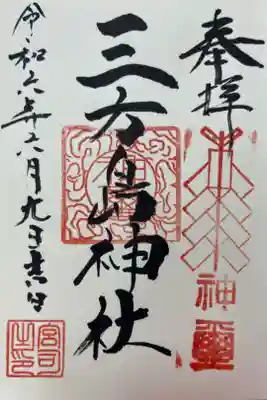 奉拝
神璽
三方島神社
令和六年六月九日吉日
宮司之印